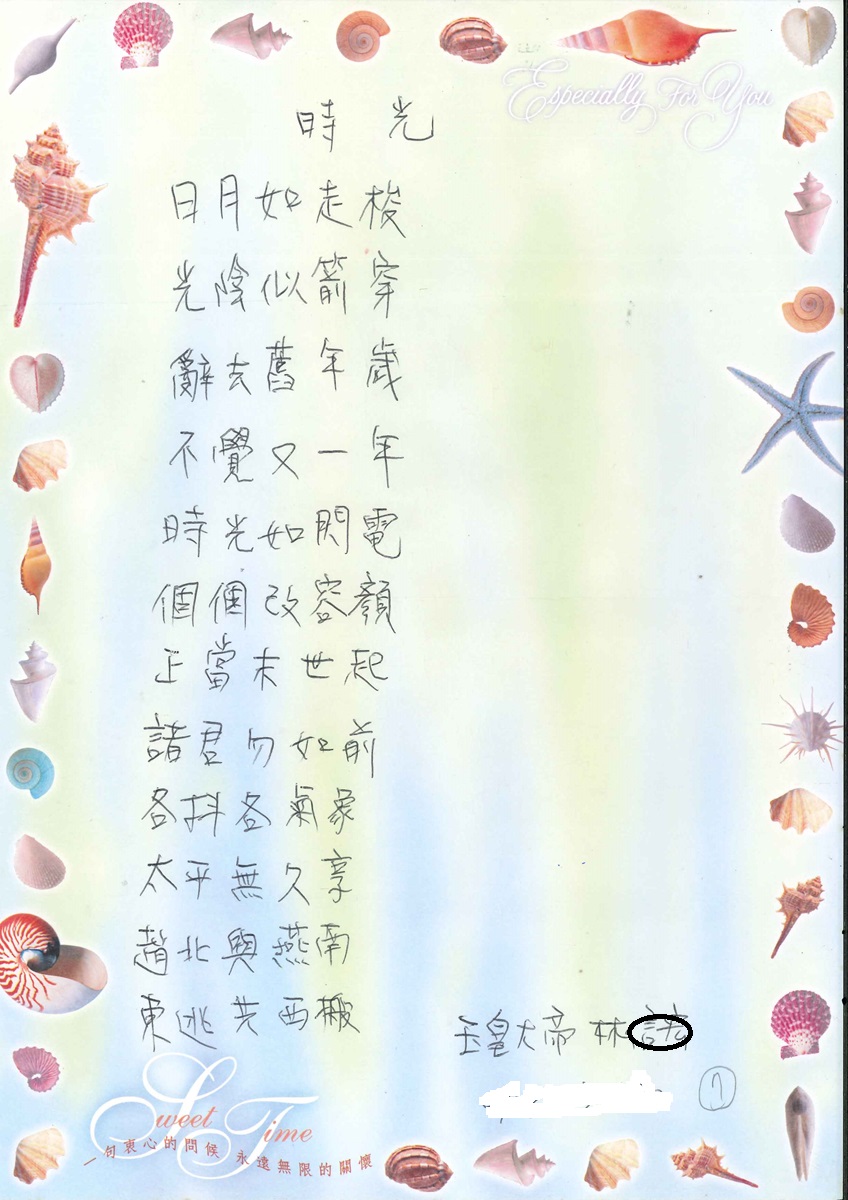 Especially For You
時光
日月如走梭
光陰似箭穿
辭去舊年歲
不覺又一年
時光如閃電
個個改容顏
正當末世起
諸君勿如前
各抖各氣象
太平無久享
趙北與燕南
東逃共西搬
玉皇大帝 林
7
Sweet Time
一句衷心的問候 永遠無限的關懷